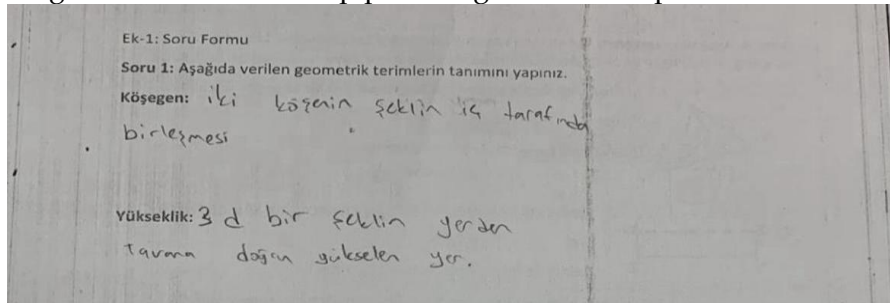 Ek-1: Soru Formu
Soru 1: Aşağıda verilen geometrik terimlerin tanımını yapınız.
Köşegen: iki köşenin şeklin iç tarafında
birleşmesi
Yükseklik: 3 d bir şeklin yerden
tavana doğru yükselen yer.